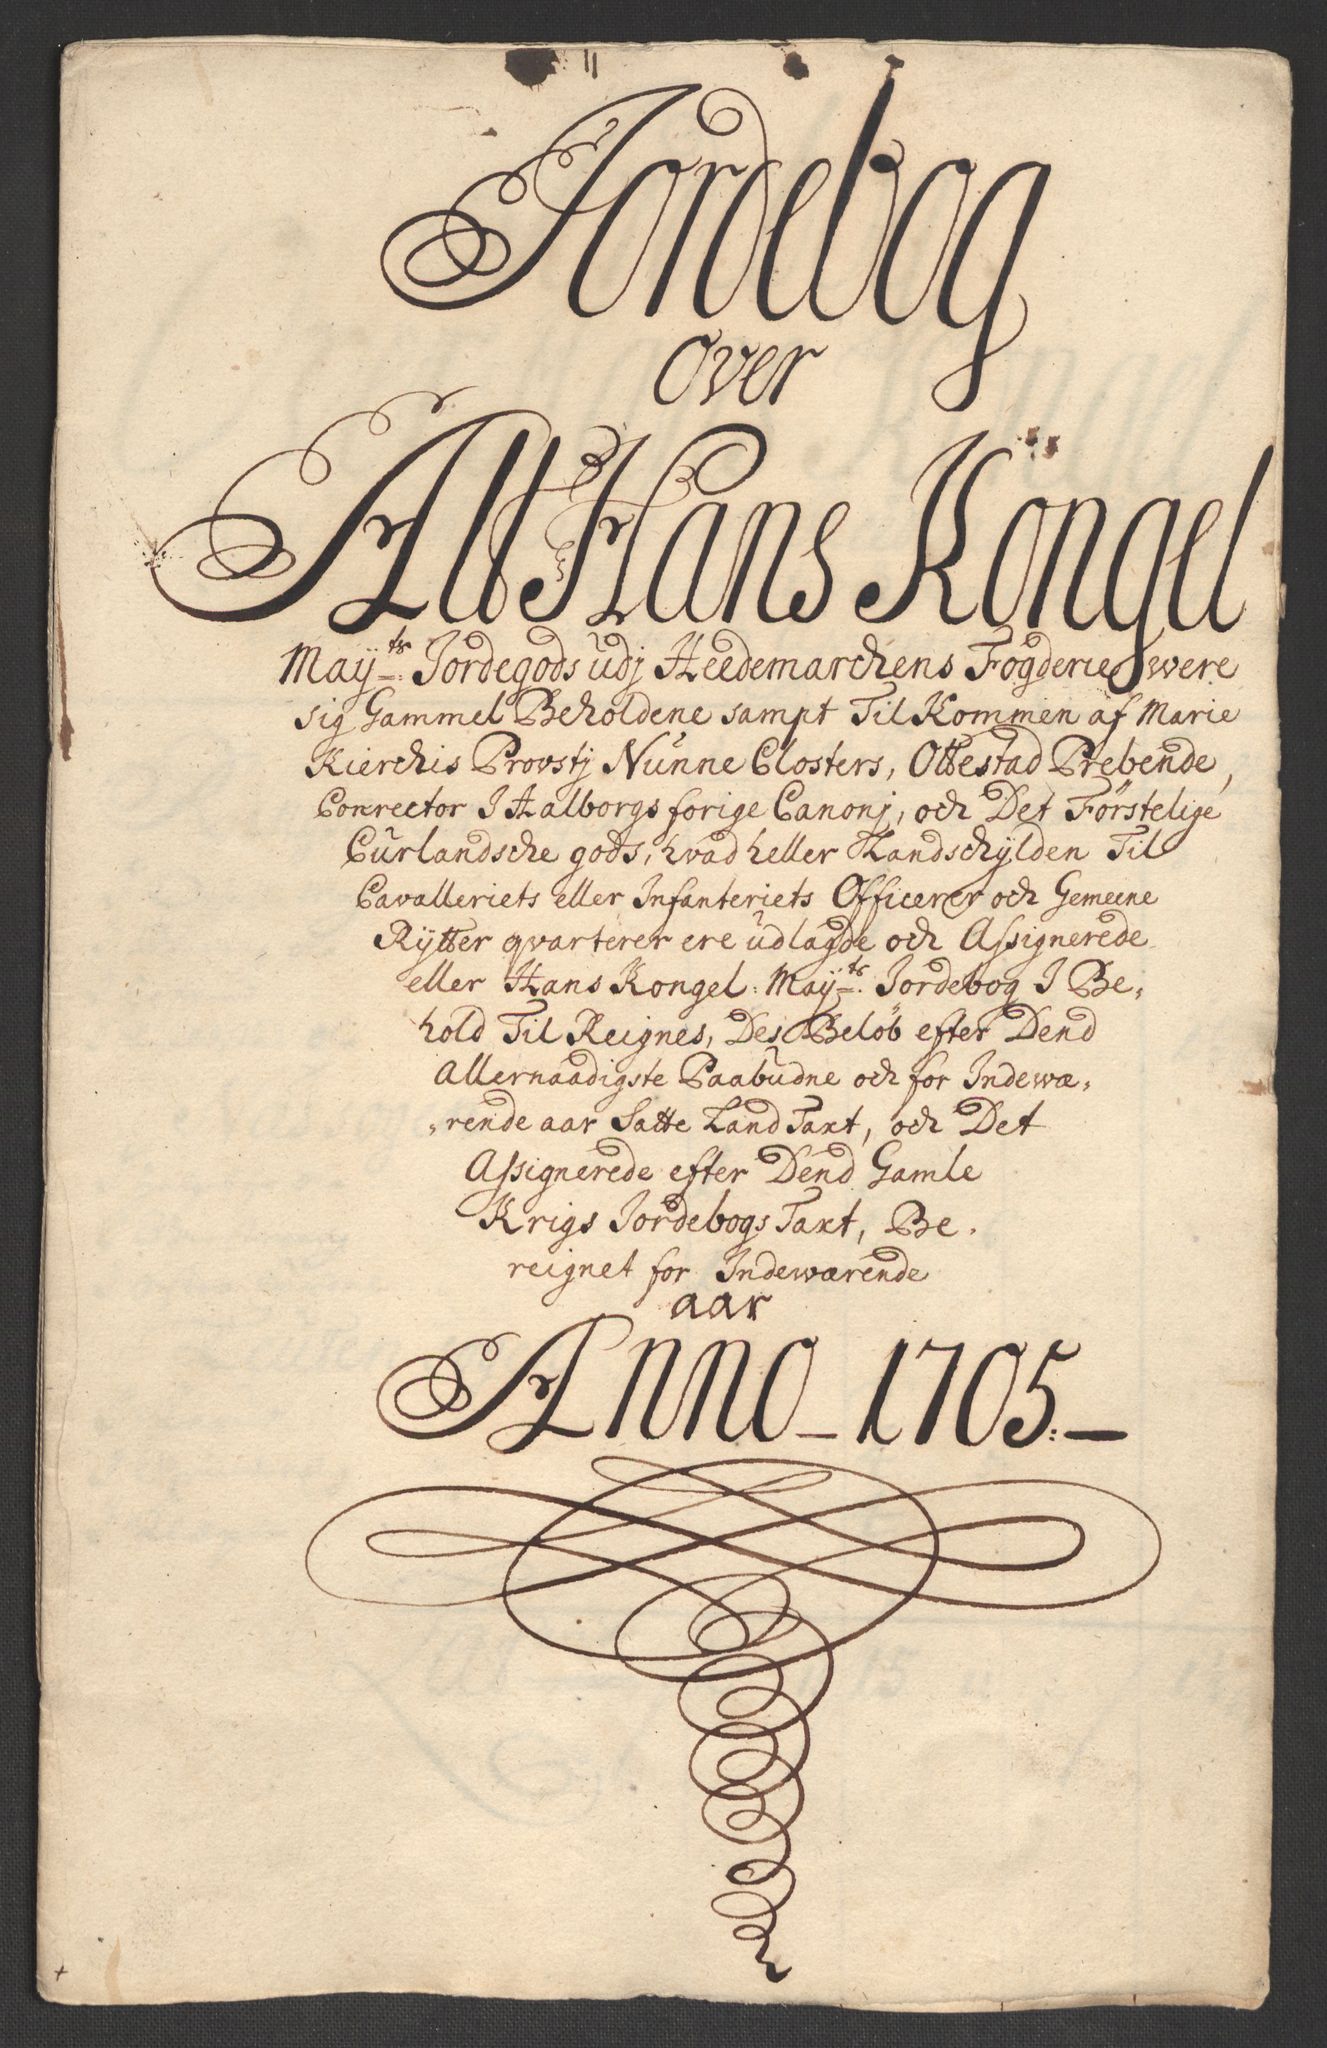 Jordebog
over
All Hans Kongel
Maytz: Jordegods udj Heedemarchens Fogderie were
sig Gammel Beholdene sampt Til Kommen af Marie
Kierchis Provstj Nunne Closters, Ottestad Prebende,
Conrector I Aalborgs forige Canonj, och Det Förstelige
Curlandsche gods, hvad heller Landschylden Til
Cavalleriets eller Infanteriets Officerer och Gemeene
Rytter qvarterer ere udlagde och Assignerede
eller Hans Kongel: Maytz: Jordebog I Be,
hold Til Reignes, Des Beløb efter Dend
Allernaadigste Paabudne och for Indewæ,
,rende aar Satte Land Taxt, och Det
Assignerede efter Dend Gamle
Krigs Jordebogs Taxt, Be,
reignet for Indewærende
aar
Anno 1705.